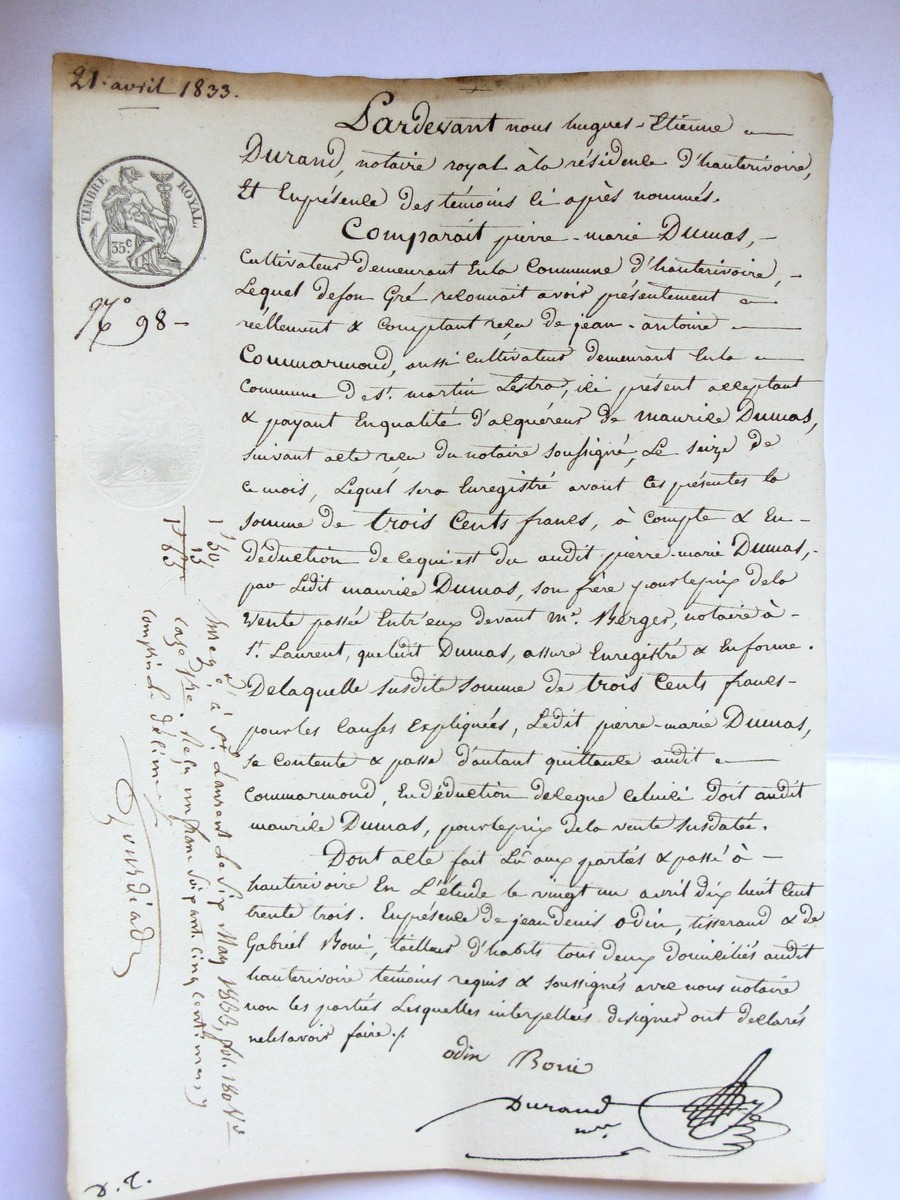 21. avril 1833.
TIMBRE ROYAL.
35.c
N.o 98 –
Pardevant nous hugues-Etienne
Durand, notaire royal à la résidence d'hauterivoire,
Et En présence des témoins ci après nommés.
Comparait pierre-marie Dumas, –
Cultivateur demeurant En la Commune d'hauterivoire, –
Lequel de son Gré reconnait avoir présentement
réellement & Comptant reçu de jean-antoine
Commarmond, aussi Cultivateur demeurant En la
Commune de st. martin Lestra, ici présent acceptant
& payant En qualité d'acquéreur de maurice Dumas,
suivant acte reçu du notaire soussigné, Le seize de
ce mois, Lequel sera Enregistré avant Ces présentes la
somme de trois Cents francs, à Compte & En –
déduction de ce qui est du audit pierre-marie Dumas, –
par Ledit maurice Dumas, son frère pour le prix de la
vente passée Entr'eux devant me. Berger, notaire à –
st. Laurent, que ledit Dumas, assure Enregistré & En forme.
De laquelle susdite somme de trois Cents francs –
pour les Causes Expliquées, Ledit pierre-marie Dumas,
se Contente & passe d'autant quittance audit
Commarmond, En déduction de ce que Celui ci doit audit
maurice Dumas, pour le prix de la vente susdatée.
Dont acte fait Lû aux parties & passé à –
hauterivoire En L'étude le vingt un avril dix huit Cent
trente trois. En présence de jean denis odin, tisserand & de
Gabriel Boni, tailleur d'habits tous deux domiciliés audit
hauterivoire témoins requis & soussignés avec nous notaire
non les parties Lesquelles interpellées de signer ont déclarés
ne le savoir faire./.
odin Boni
Durand
nre
1f 50
15
1f 65
Enregé à St Laurent Le Six May 1833, fol. 180 Vo
Case 4re. Reçu un franc soixante cinq centimes y
compris le décime
D. C.